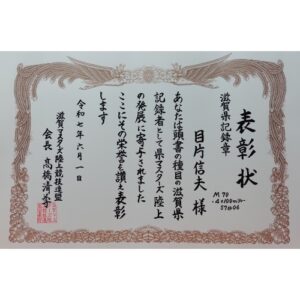 表彰状
滋賀県記録章
M70
4×100mR
57秒06
目片信夫 様
あなたは頭書の種目の滋賀県
記録者として県マスターズ陸上
の発展に寄与されました
ここにその栄誉を讃え表彰
します
令和七年六月一日
滋賀マスターズ陸上競技連盟
会長 高橋清